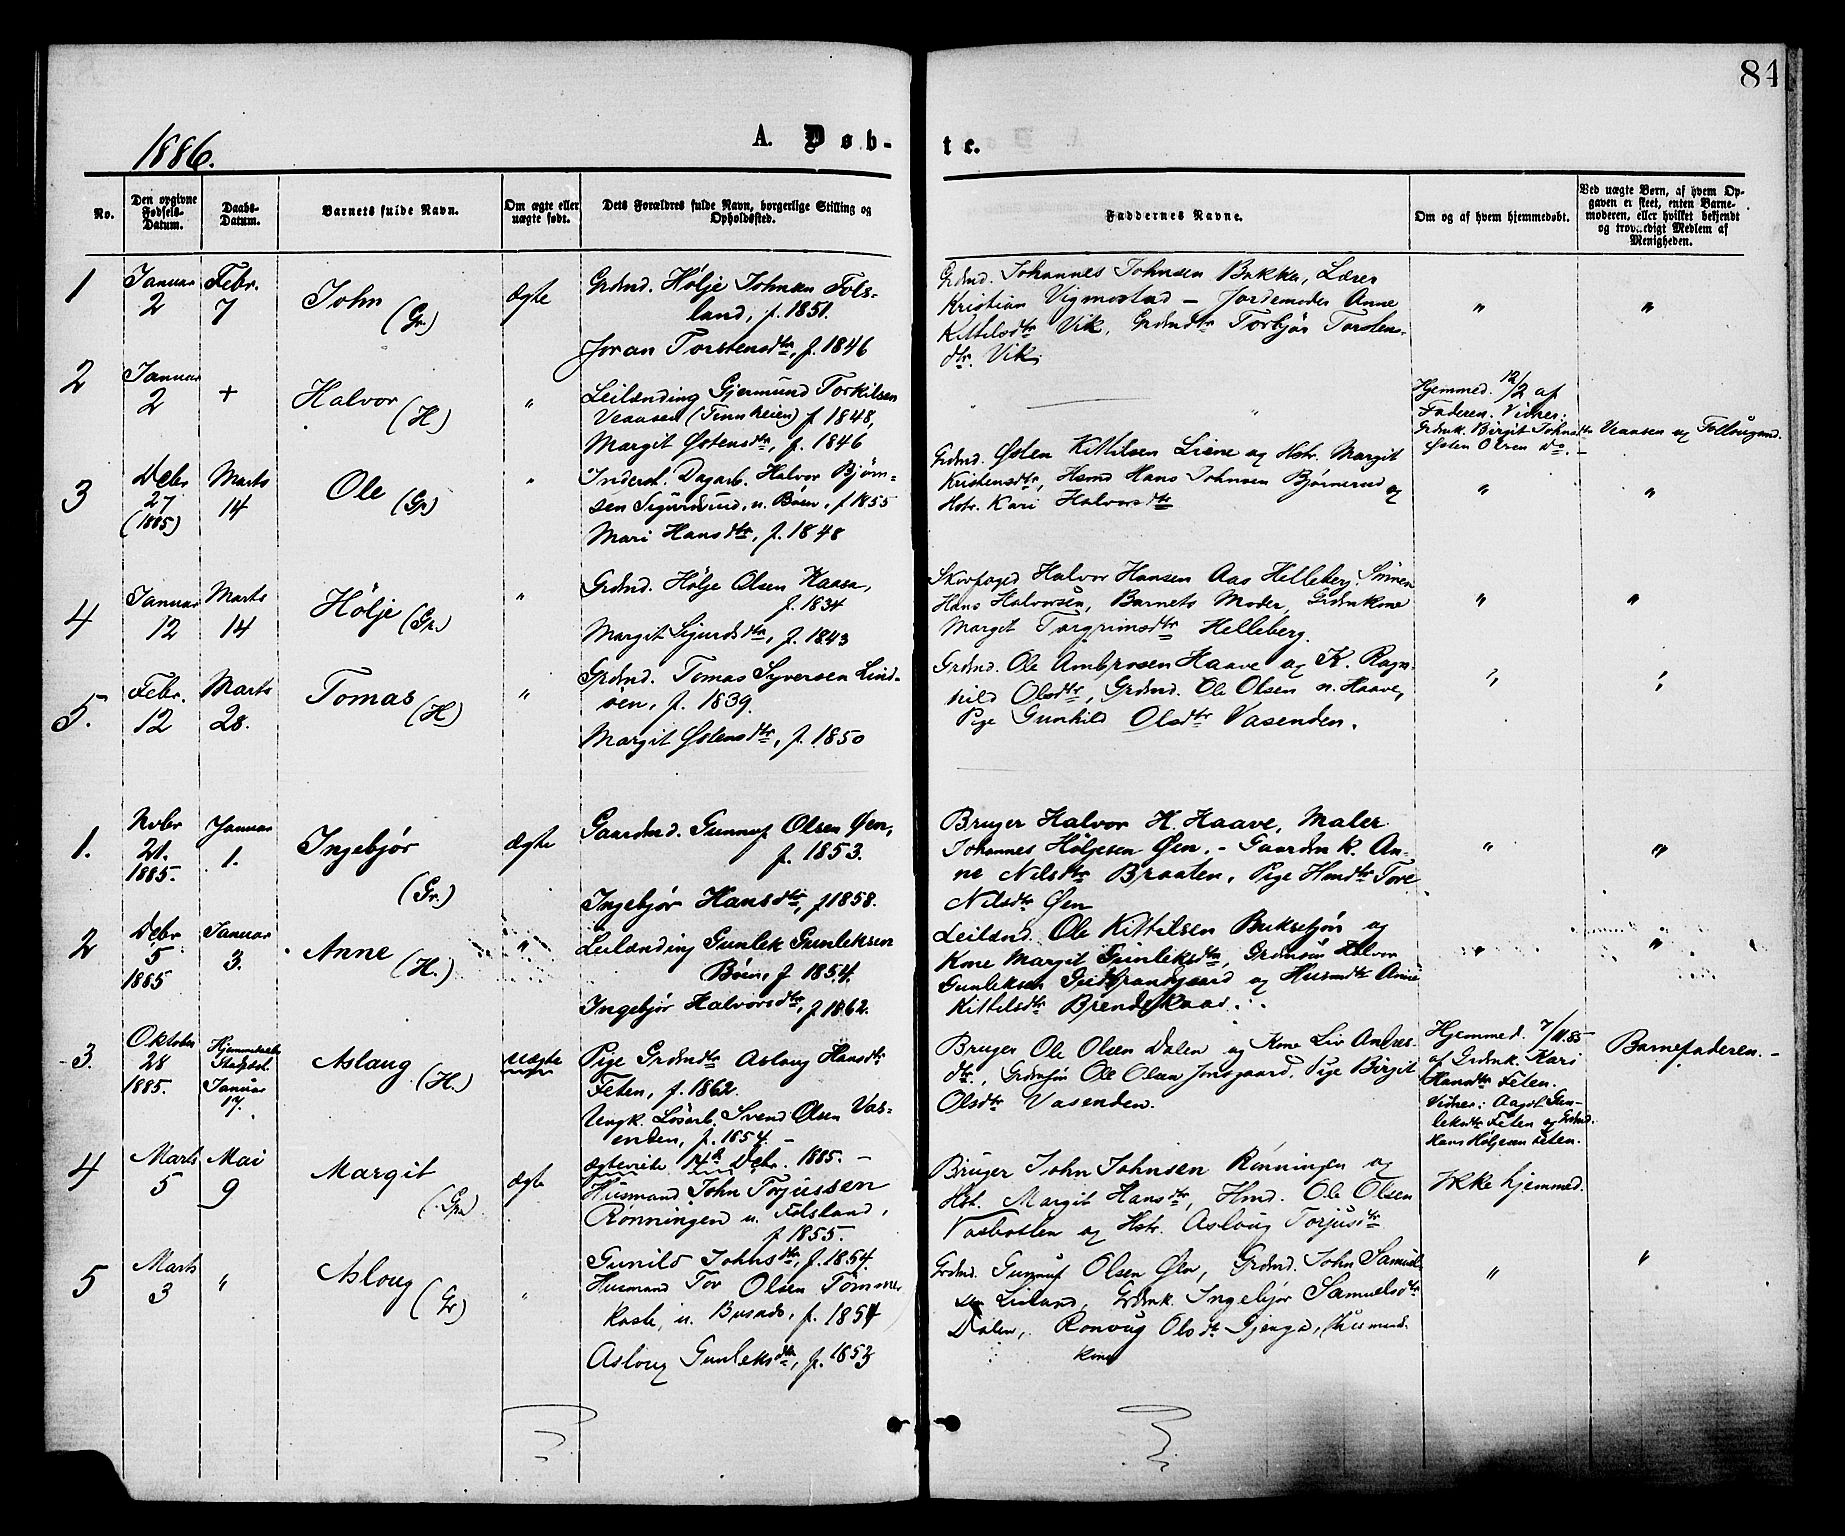 84
1886.
A. Døb-
te.
No.
Den opgivne Fødsels-Datum.
Daabs-Datum.
Barnets fulde Navn.
Om ægte eller uægte født.
Dets Forældres fulde Navn, borgerlige Stilling og Opholdssted.
Faddernes Navne.
Om og af hvem hjemmedøbt.
Ved uægte Børn, af hvem Opgaven er skeet, enten Barnemoderen, eller hvilket bekjendt og troværdigt Medlem af Menigheden.
1
Januar 2
Febr. 7
John (Gr.)
Ægte
Grdmd. Hølje Johnsen Fols-
land, f. 1851.
Joran Torstensdtr, f. 1846
Grdmd. Johannes Johnsen Bakka, Lærer
Kristian Vigmostad – Jordemoder Anne
Kittilsdtr Vik, Grdmdtr Torbjør Torstens-
dtr. Vik.
"
"
2
Januar 2
+
Halvor (H.)
"
Leilænding Gjermund Torkilsen
Vaaaen (Tinnheien) f 1848,
Margit Østensdtr, f. 1846
"
Hjemmed. 12/2 af
Faderen. Vidner:
Grdmk. Birgit Johnsdtr Vaaaen og
Østen Olsen do. –
3
Debr 27 (1885)
Marts 14
Ole (Gr.)
"
Inderst. Dagarb. Halvor Bjørn-
sen Sigurdsud, u. Bøen, f 1855
Mari Hansdtr, f. 1848
Grdmd. Østen Kittilsen Liene og Hstr. Margit
Kristensdtr, Hsmd Hans Johnsen Bjørnerud og
Hstr. Kari Halvorsdtr
"
"
4
Januar 12
Marts 14
Hølje (Gr.)
"
Grdmd. Hølje Olsen Kaasa,
f. 1834
Margit Sigurdsdtr, f. 1843
Skovfoged Halvor Hansen Aas Helleberg,
Hans Halvorsen, Barnets Moder, Grdmkone
Margit Torgrimsdtr Helleberg.
"
"
5.
Febr. 12
Marts 28.
Tomas (H)
"
Grdmd. Tomas Syversen Lind-
øen, f. 1839.
Margit Østensdtr, f. 1850
Grdmd. Ole Ambrosen Haave og K. Ragn-
hild Olsdtr, Grdmd. Ole Olsen n. Haave,
Pige Gunhild Olsdtr Vasenden.
"
"
1.
Nvbr 21. 1885.
Januar 1.
Ingebjør (Gr.)
Ægte
Gaardmd. Gunnuf Olsen Øen,
f. 1853.
Ingebjør Hansdtr, f 1858.
Bruger Halvor H. Haave, Maler
Johannes Høljesen Øen. – Gaardm k. An-
ne Nilsdtr Braaten, Pige Hmdtr Tore
Nilsdtr Øen
"
"
2
Debr 5 1885
Januar 3.
Anne (H.)
"
Leilænding Gunlek Gunleksen
Bøen, f 1854.
Ingebjør Halvorsdtr, f 1862.
Leilænd. Ole Kittilsen Buksetjøn og
Kone Margit Gunleksdtr, Grdmsøn Halvor
Gunleksen Gudbrandsgaard og Husmdtr Anne
Kittilsdtr Brendekaas.
"
"
3.
Oktober 28 1885.
Januar 17.
Aslaug (H.)
Uægte
Pige Grdmdtr Aslaug Hansdtr
Feten, f. 1862.
Ungk. Løsarb. Svend Olsen Vas-
enden, f. 1854. –
Ægteviede 14de Debr. 1885. –
Bruger Ole Olsen Dalen og Kone Liv Andres-
dtr, Grdmsøn Ole Olsen Jonsgaard, Pige Birgit
Olsdtr Vasenden.
Hjemmed. 7/11.85
af Grdmk. Kari
Hansdtr Feten.
Vidner: Aagot Gun-
leksdtr Feten og Grdmd.
Hans Høljesen Feten.
Barnefaderen. –
4
Marts 5
Mai 9
Margit (Gr.)
Ægte
Husmand John Torjussen
Rønningen u. Folsland,
f 1855.
Gunild Johnsdtr, f. 1854.
Bruger John Johnsen Rønningen og
Hst. Margit Hansdtr, Hmd. Ole Olsen
Vasbotten og Hstr. Aslaug Torjusdtr
Ikke hjemmed.
5
Marts 3
"
Aslaug (Gr)
"
Husmand Tor Olsen Tømmer-
kaste, u. Busnæs, f. 1854
Aslaug Gunleksdtr, f. 1853
Grdmd. Gunnuf Olsen Øen, Grdmd. John Samuel-
sen Lisland, Grdmk. Ingebjør Samuelsdtr
Dalen, Ronvug Olsdtr Gjengd, (Husmands-
kone
"
"